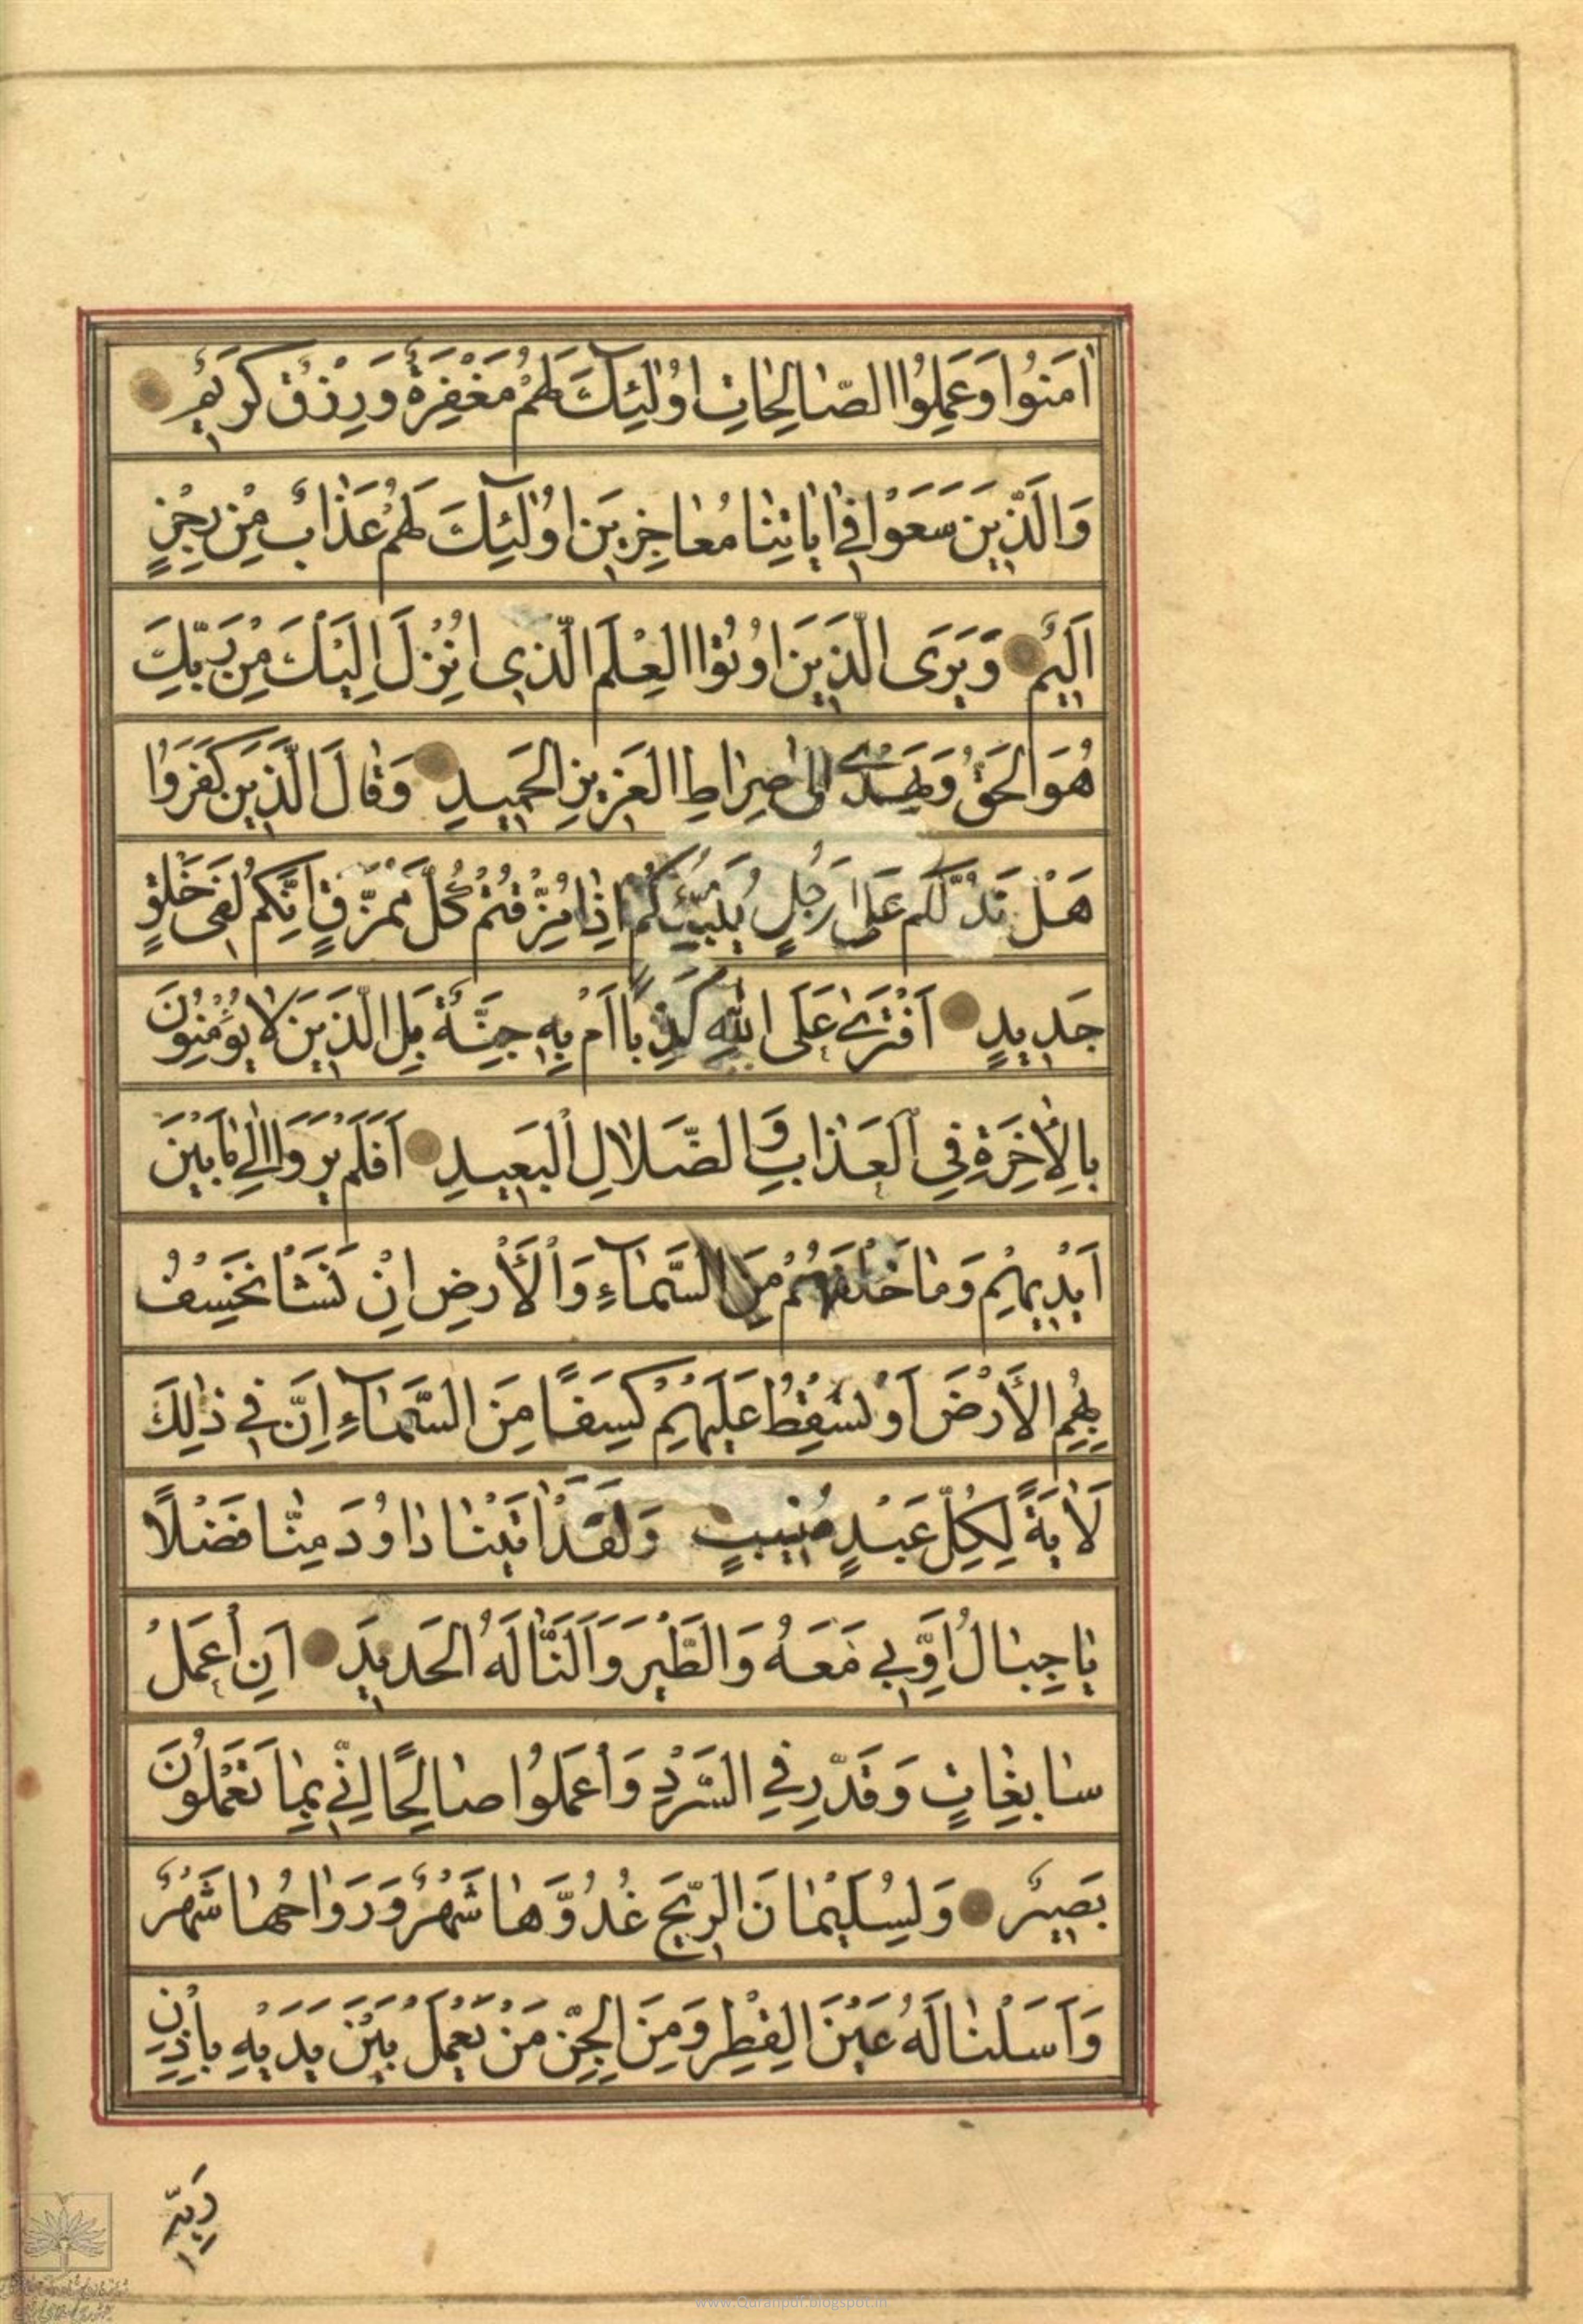 اٰمَنُوا وَعَمِلُوا الصّٰالِحٰاتِ اُولٰئِكَ لَهُمْ مَغْفِرَةٌ وَرِزْقٌ كَرِيمٌ
وَالَّذِينَ سَعَوْا فِي اٰيٰاتِنٰا مُعٰاجِزِينَ اُولٰئِكَ لَهُمْ عَذٰابٌ مِنْ رِجْزٍ
اَلِيمٌ وَيَرَى الَّذِينَ اُوتُوا الْعِلْمَ الَّذِي اُنْزِلَ اِلَيْكَ مِنْ رَبِّكَ
هُوَ الْحَقَّ وَيَهْدِي اِلىٰ صِرٰاطِ الْعَزِيزِ الْحَمِيدِ وَقٰالَ الَّذِينَ كَفَرُوا
هَلْ نَدُلُّكُمْ عَلىٰ رَجُلٍ يُنَبِّئُكُمْ اِذٰا مُزِّقْتُمْ كُلَّ مُمَزَّقٍ اِنَّكُمْ لَفِي خَلْقٍ
جَدِيدٍ اَفْتَرىٰ عَلَى اللّٰهِ كَذِبًا اَمْ بِهِ جِنَّةٌ بَلِ الَّذِينَ لٰا يُؤْمِنُونَ
بِالْاٰخِرَةِ فِي الْعَذٰابِ وَالضَّلٰالِ الْبَعِيدِ اَفَلَمْ يَرَوْا اِلىٰ مٰا بَيْنَ
اَيْدِيهِمْ وَمٰا خَلْفَهُمْ مِنَ السَّمٰاءِ وَالْأَرْضِ اِنْ نَشَأْ نَخْسِفْ
بِهِمُ الْأَرْضَ اَوْ نُسْقِطْ عَلَيْهِمْ كِسَفًا مِنَ السَّمٰاءِ اِنَّ فِي ذٰلِكَ
لَاٰيَةً لِكُلِّ عَبْدٍ مُنِيبٍ وَلَقَدْ اٰتَيْنٰا دٰاوُدَ مِنّٰا فَضْلًا
يٰا جِبٰالُ اَوِّبِي مَعَهُ وَالطَّيْرَ وَاَلَنّٰا لَهُ الْحَدِيدَ اَنِ اعْمَلْ
سٰابِغٰاتٍ وَقَدِّرْ فِي السَّرْدِ وَاعْمَلُوا صٰالِحًا اِنِّي بِمٰا تَعْمَلُونَ
بَصِيرٌ وَلِسُلَيْمٰانَ الرِّيحَ غُدُوُّهٰا شَهْرٌ وَرَوٰاحُهٰا شَهْرٌ
وَاَسَلْنٰا لَهُ عَيْنَ الْقِطْرِ وَمِنَ الْجِنِّ مَنْ يَعْمَلُ بَيْنَ يَدَيْهِ بِاِذْنِ
رَبِّهِ
www.Quranpdf.blogspot.in